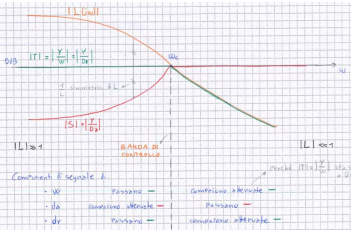 |L(jω)|
|T| = |Y/W| = |Y/Dr|
0dB
ωc
ω
simmetrico di L
|S| = |Y/Da|
|L|≫1
BANDA DI CONTROLLO
|L|≪1
perché |T|=
Componenti di segnale di
• W Passano — Compaiono attenuate —
• da compaiono attenuate — Passano —
• dr Passano — compaiono attenuate —